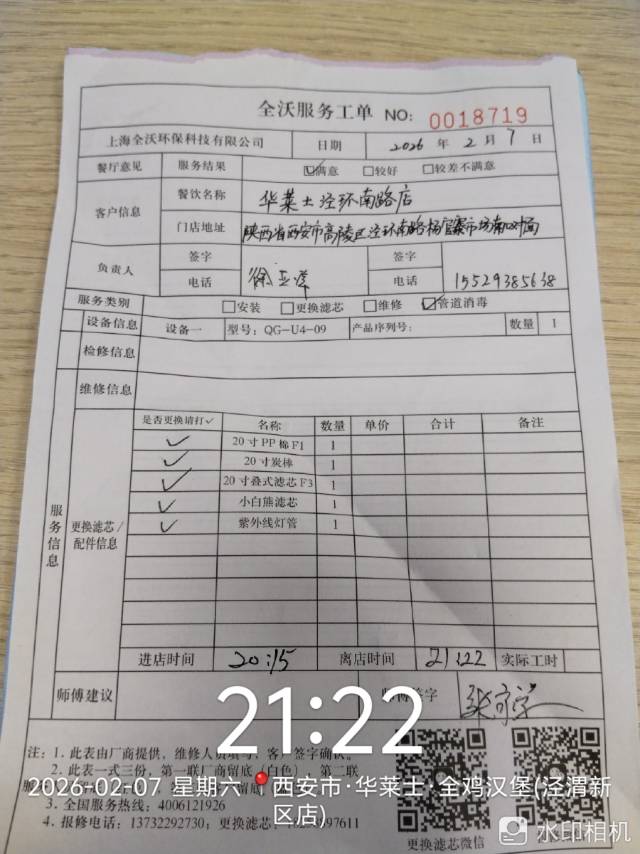 全沃服务工单 NO: 0018719
上海全沃环保科技有限公司 日期 2026 年 2 月 7 日
餐厅意见 服务结果 ☑满意 □较好 □较差不满意
客户信息 餐饮名称 华莱士泾环南路店
门店地址 陕西省西安市高陵区泾环南路杨官寨市场南口对面
负责人 签字 签字
电话 徐 电话 15529385638
服务类别 □安装 □更换滤芯 □维修 ☑管道消毒
设备信息 设备一 型号: QG-U4-09 产品序列号: 数量 1
检修信息
维修信息
服务信息
更换滤芯/配件信息
是否更换请打✓ 名称 数量 单价 合计 备注
✓ 20寸PP棉F1 1
✓ 20寸炭棒 1
✓ 20寸叠式滤芯F3 1
✓ 小白熊滤芯 1
✓ 紫外线灯管 1
进店时间 20:15 离店时间 21:22 实际工时
师傅建议 师傅签字
21:22
注: 1. 此表由厂商提供, 维修人员填写, 客户签字确认。
2. 此表一式三份, 第一联厂商留底(白色), 第二联
2026-02-07 星期六 西安市·华莱士·全鸡汉堡(泾渭新区店)
3. 全国服务热线: 4006121926
4. 报修电话: 13732292730; 更换滤芯: 97611
更换滤芯微信
水印相机